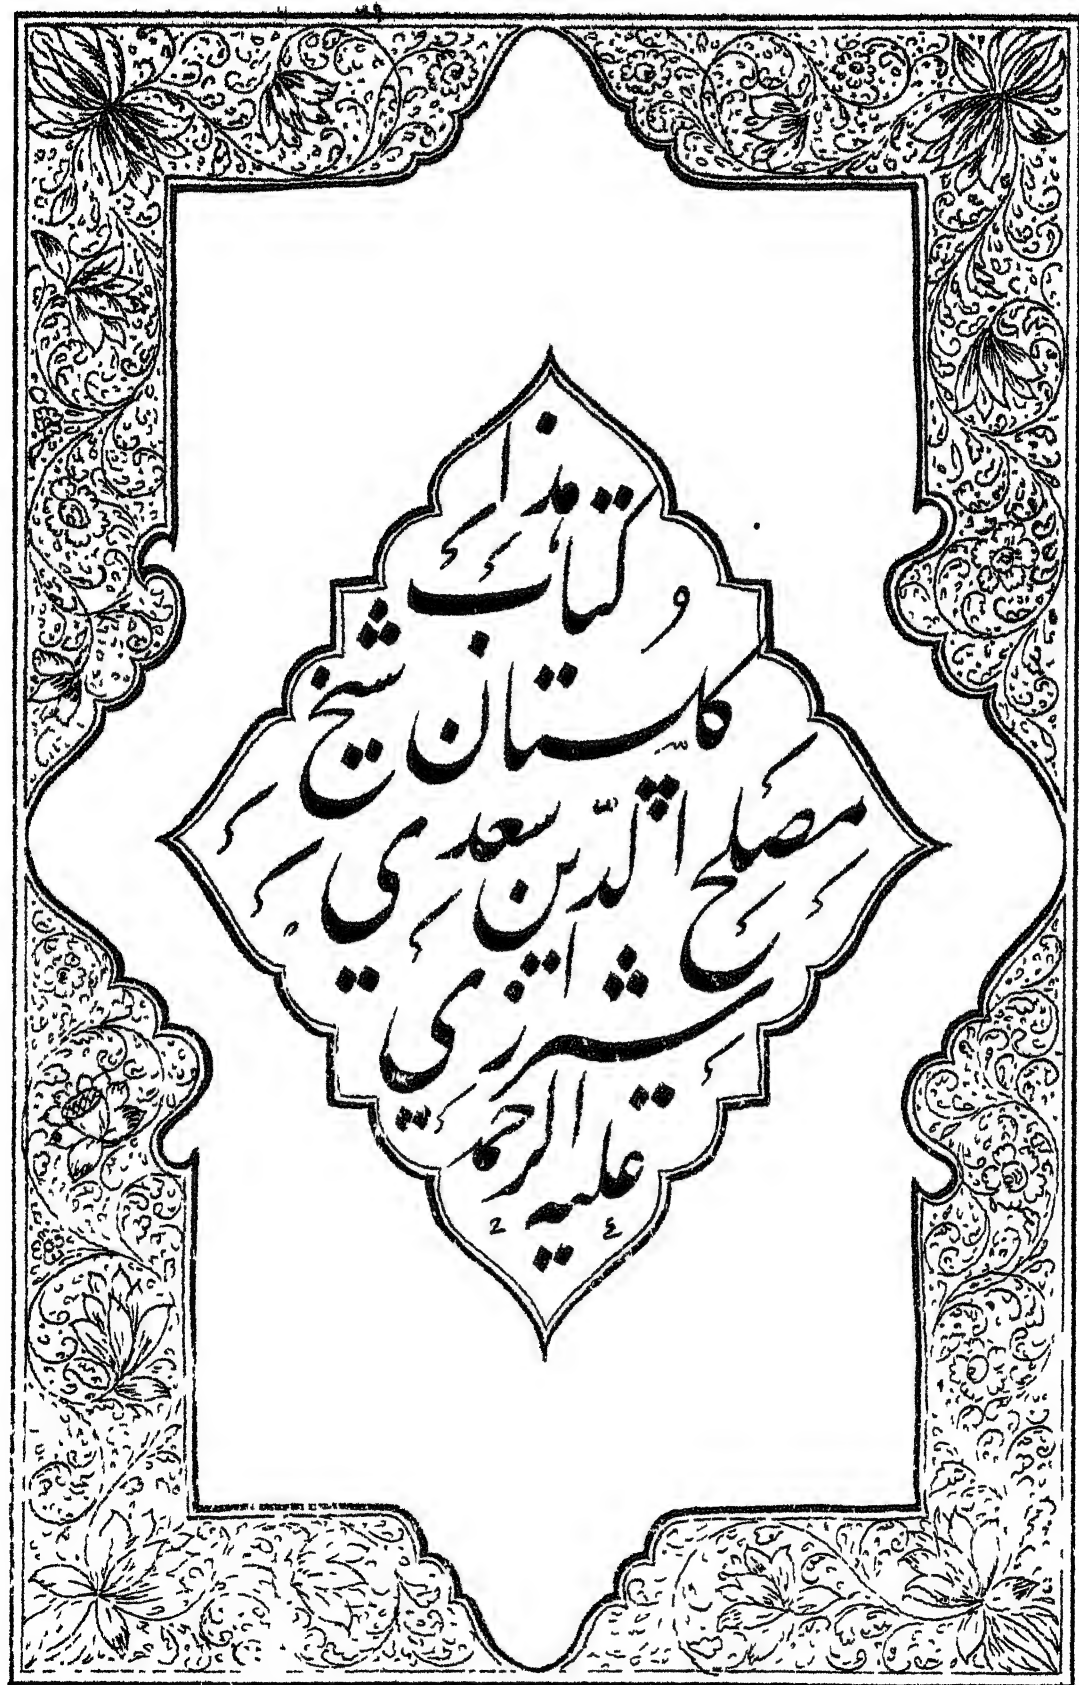 هذا
کتاب
کلستان شیخ
مصلح الدین سعدی
شیرازی
علیه الرحمه